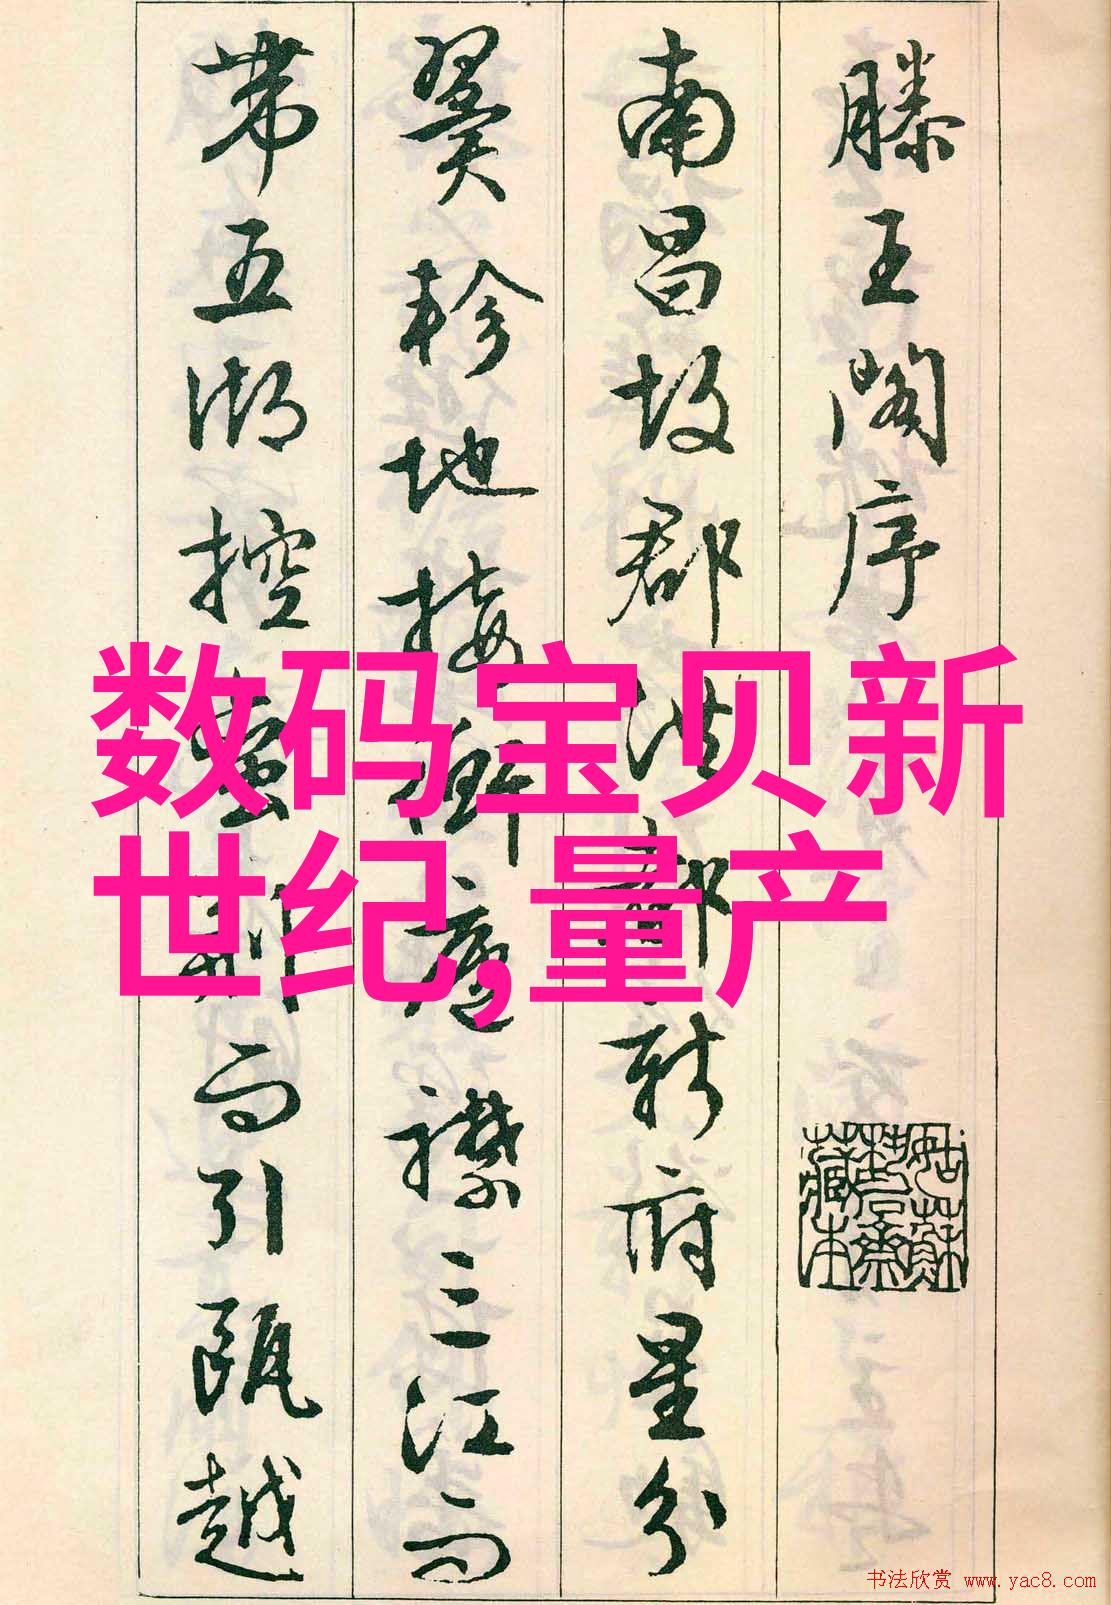 滕王阁序
南昌故郡洪都新府星分
翼轸地接衡庐襟三江而
带五湖控蛮荆而引瓯越
姑苏
藏本
数码宝贝新
世纪,量产
书法欣赏 www.yac8.com